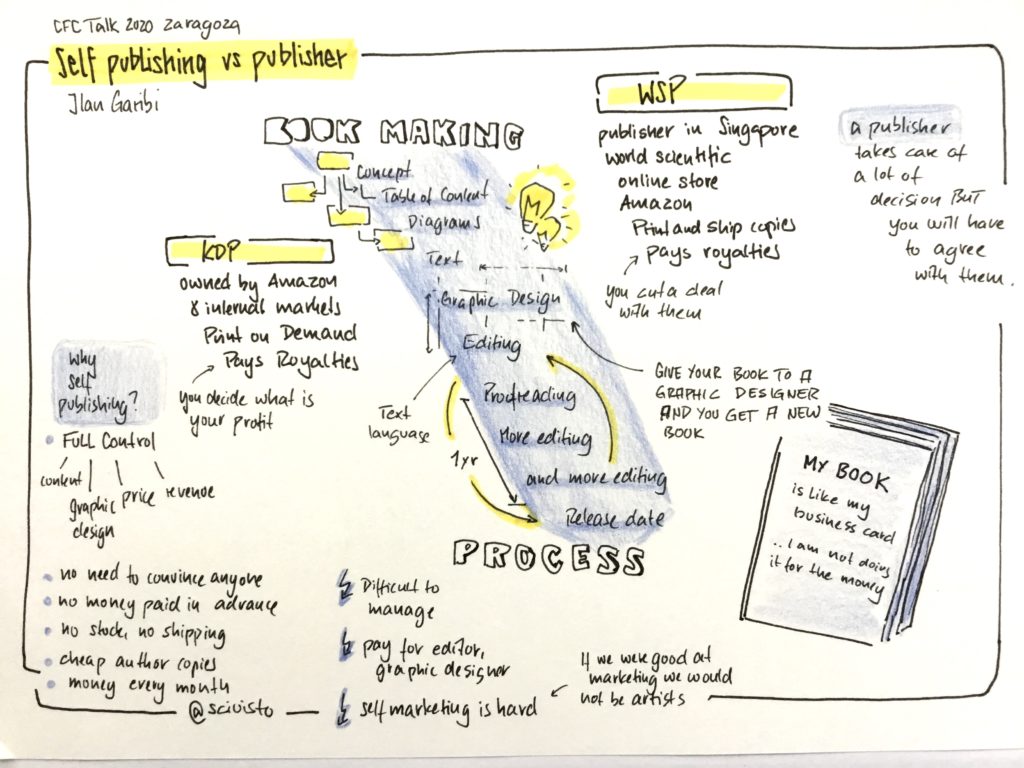 CFC Talk 2020 Zaragoza
Self publishing vs publisher
Ilan Garibi
BOOK MAKING
Concept
Table of Content
Diagrams
Text
Graphic Design
Editing
Proofreading
More editing
and more editing
Release date
PROCESS
1yr
Text
language
GIVE YOUR BOOK TO A
GRAPHIC DESIGNER
AND YOU GET A NEW
BOOK
KDP
owned by Amazon
8 internal markets
Print on Demand
Pays Royalties
you decide what is
your profit
WSP
publisher in Singapore
world scientific
online store
Amazon
Print and ship copies
Pays royalties
you cut a deal
with them
a publisher
takes care of
a lot of
decision BUT
you will have
to agree
with them.
why
self
publishing?
FULL Control
content
graphic
design
price
revenue
no need to convince anyone
no money paid in advance
no stock, no shipping
cheap author copies
money every month
@scivisto
Difficult to
manage
pay for editor,
graphic designer
self marketing is hard
If we were good at
marketing we would
not be artists
MY BOOK
is like my
business card
.. I am not doing
it for the money